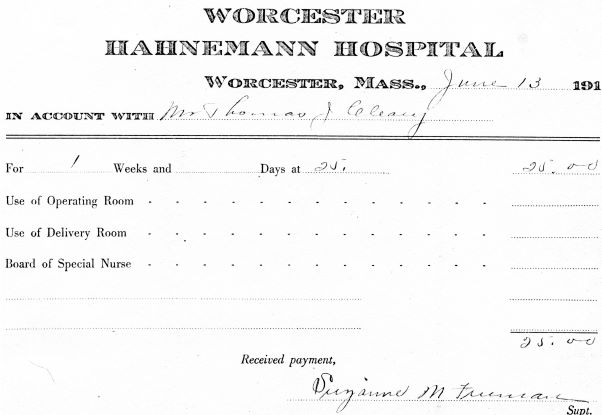 WORCESTER
HAHNEMANN HOSPITAL
WORCESTER, MASS., June 13 191
IN ACCOUNT WITH Mr Thomas J Cleary
For 1 Weeks and Days at 25. 25.00
Use of Operating Room
Use of Delivery Room
Board of Special Nurse
25.00
Received payment,
Suzanne M Freeman
Supt.